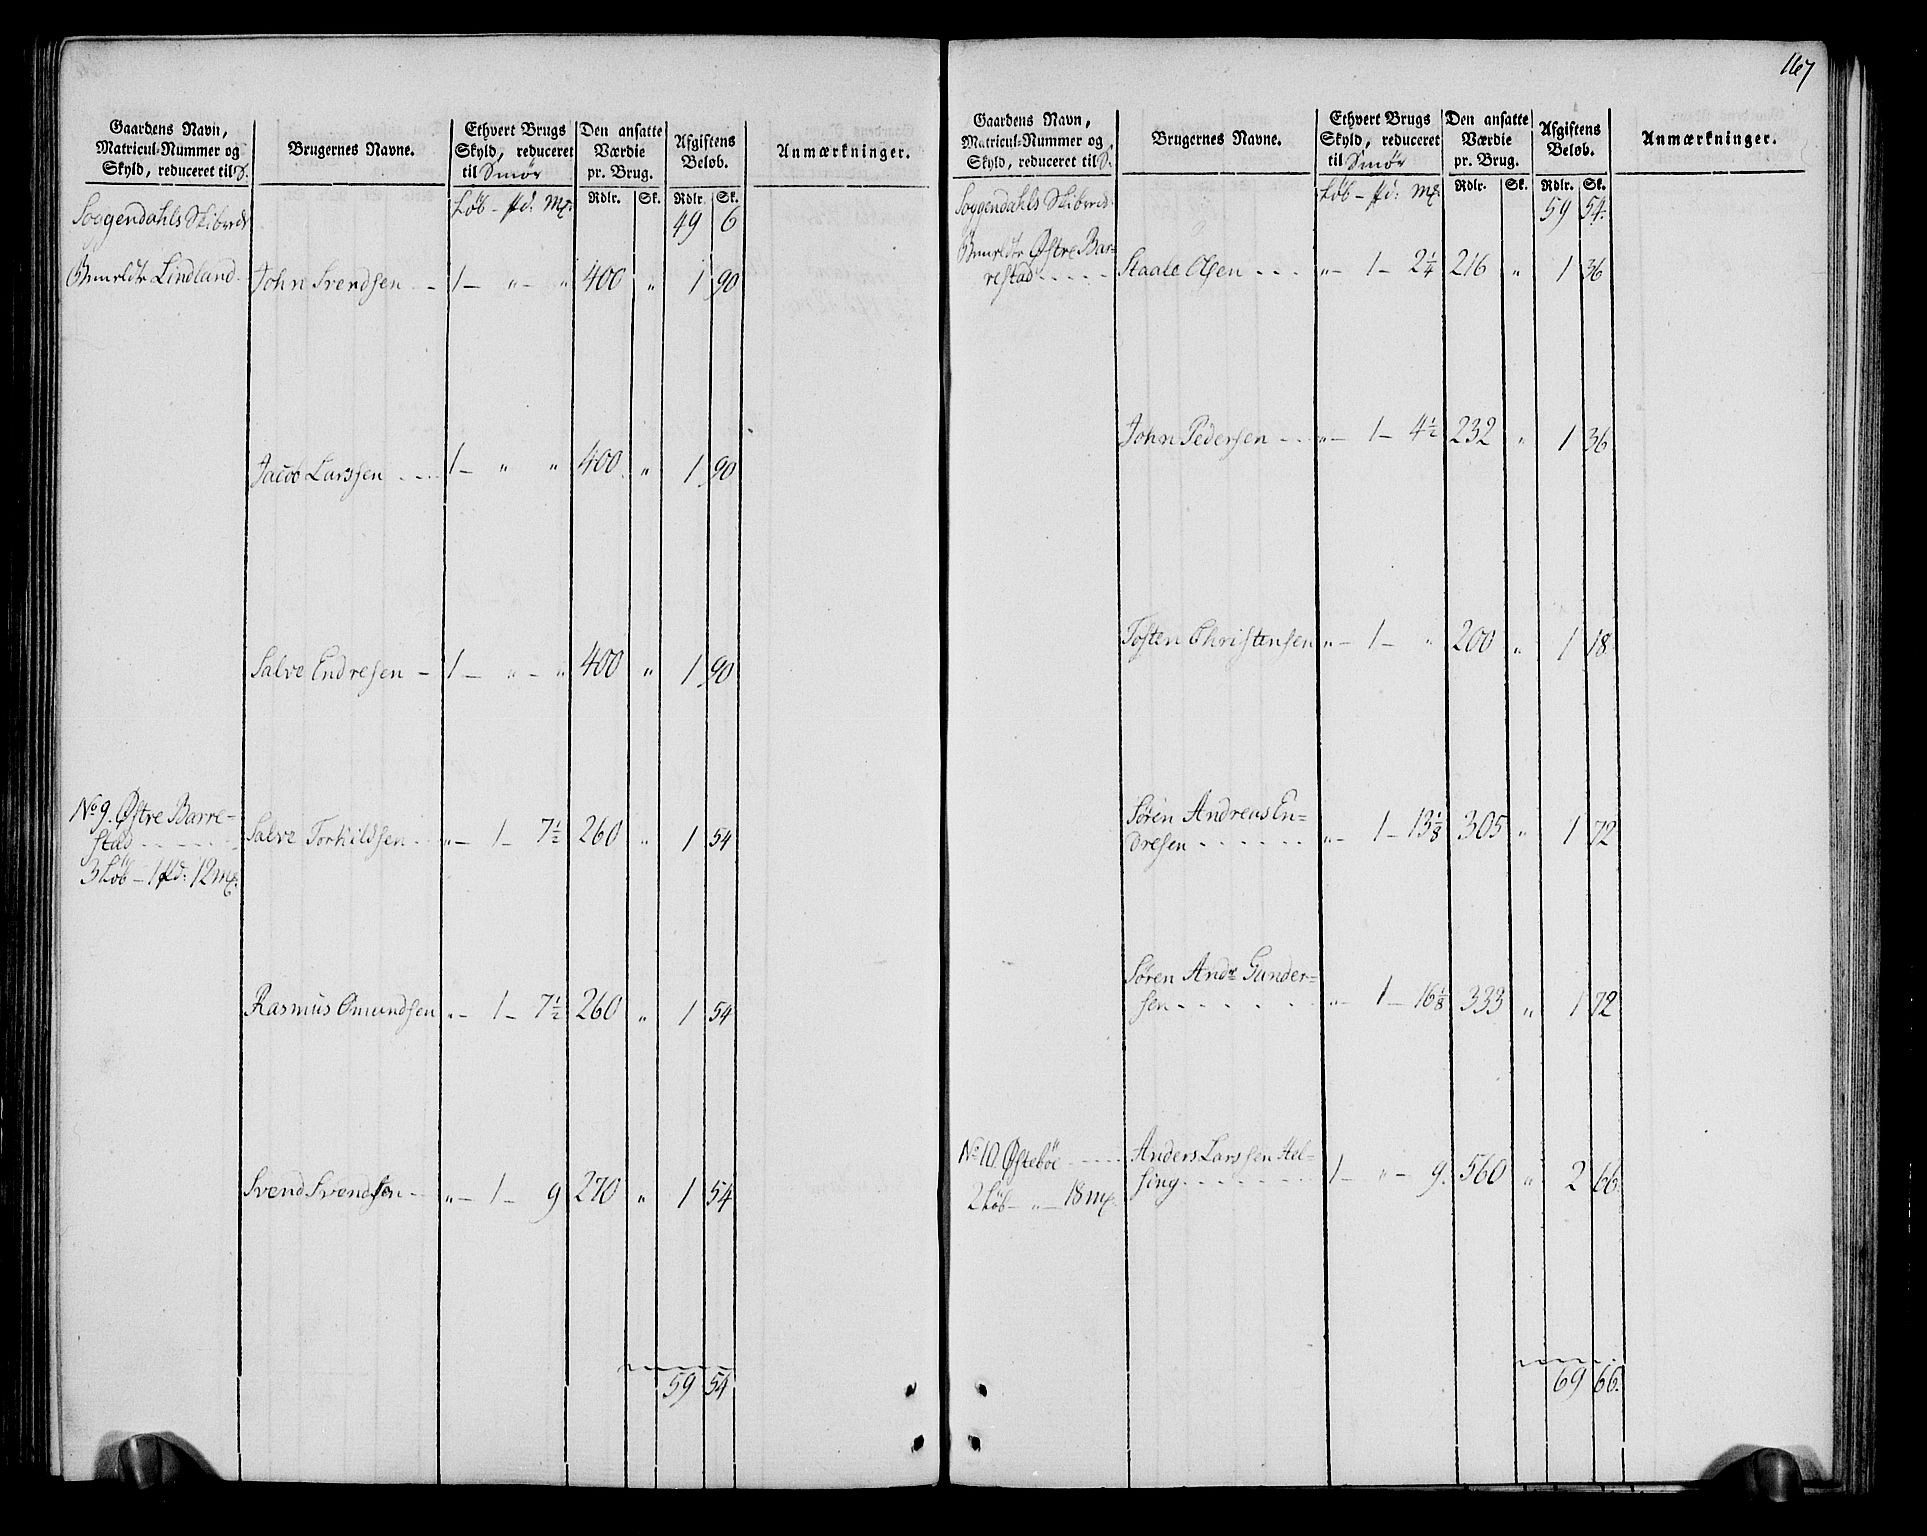 Gaardens Navn,
Matricul-Nummer og
Skyld, reduceret til S.
Brugernes Navne.
Ethvert Brugs
Skyld, reduceret
til Smör
Den ansatte
Værdie
pr. Brug.
Afgiftens
Beløb.
Anmærkninger.
Löb - Pd: Mk: Rdlr. Sk. Rdlr. Sk.
Soggendahls Skibred: 49 6
Lindland. John Svendsen - 1 - " - " 400 " 1 90
Jacob Larssen .... 1 - " " 400 " 1 90
Salve Endresen - 1 - " - " 400 " 1 90
No 9. Østre Barre-
stad - - - - - Salve Torkildsen . " - 1 - 7½ 260 " 1 54
3 Löb - 1 Pd: 12 mk:
Rasmus Omundsen " - 1 - 7½ 260 " 1 54
Svend Svendsen - - " - 1 - 9 270 " 1 54
59 54
167
Gaardens Navn,
Matricul-Nummer og
Skyld, reduceret til S.
Brugernes Navne.
Ethvert Brugs
Skyld, reduceret
til Smör
Den ansatte
Værdie
pr. Brug.
Afgiftens
Beløb.
Anmærkninger.
Löb - Pd: Mk: Rdlr. Sk. Rdlr. Sk.
Soggendahls Skibred: 59 54
Østre Bar-
restad - - - - - Staale Olsen - - - " - 1 - 2¼ 216 " 1 36
John Pedersen - - - " - 1 - 4½ 232 " 1 36
Tosten Christensen " - 1 - " 200 " 1 18
Søren Andreas En-
dresen - - - - - - " - 1 - 13⅛ 305 " 1 72
Søren Andr. Gunder-
sen - - - - - - " - 1 - 16⅛ 333 " 1 72
No 10. Østebøe - - - Anders Larssen Hel-
2 Löb - " - 18 mk: sing - - - - - - 1 - " - 9. 560 " 2 66
69 66.